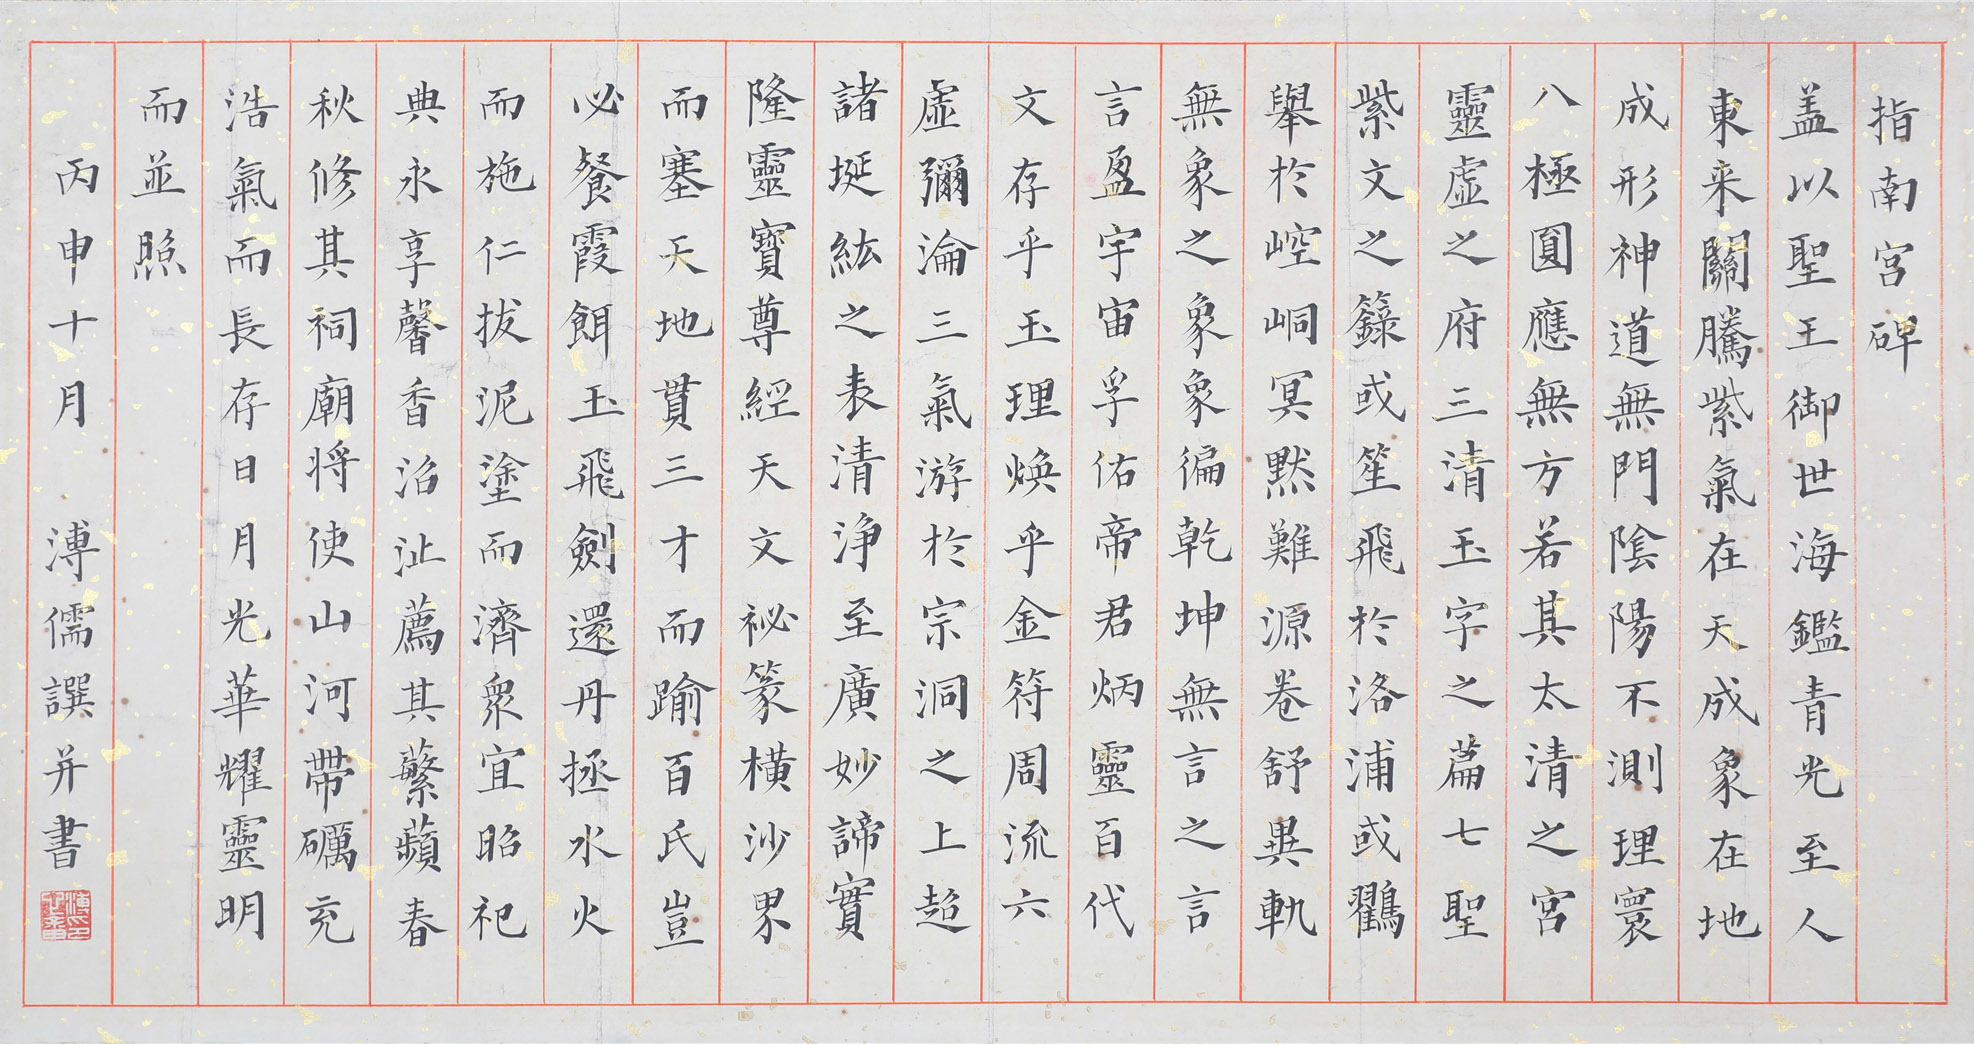 指南宮碑
盖以聖王御世海鑑青光至人
東来關騰紫氣在天成象在地
成形神道無門陰陽不測理寰
八極圓應無方若其太清之宮
靈虛之府三清玉字之篇七聖
紫文之籙或笙飛於洛浦或鸛
舉於崆峒冥默難源卷舒異軌
無象之象象徧乾坤無言之言
言盈宇宙孚佑帝君炳靈百代
文存乎玉理煥乎金符周流六
虛彌淪三氣游於宗洞之上超
諸埏紘之表清淨至廣妙諦實
隆靈寶尊經天文祕篆橫沙界
而塞天地貫三才而踰百氏豈
必餐霞餌玉飛劍還丹拯水火
而施仁拔泥塗而濟眾宜昭祀
典永享馨香沼沚薦其蘩蘋春
秋修其祠廟将使山河帶礪充
浩氣而長存日月光華耀靈明
而並照
丙申十月 溥儒譔并書